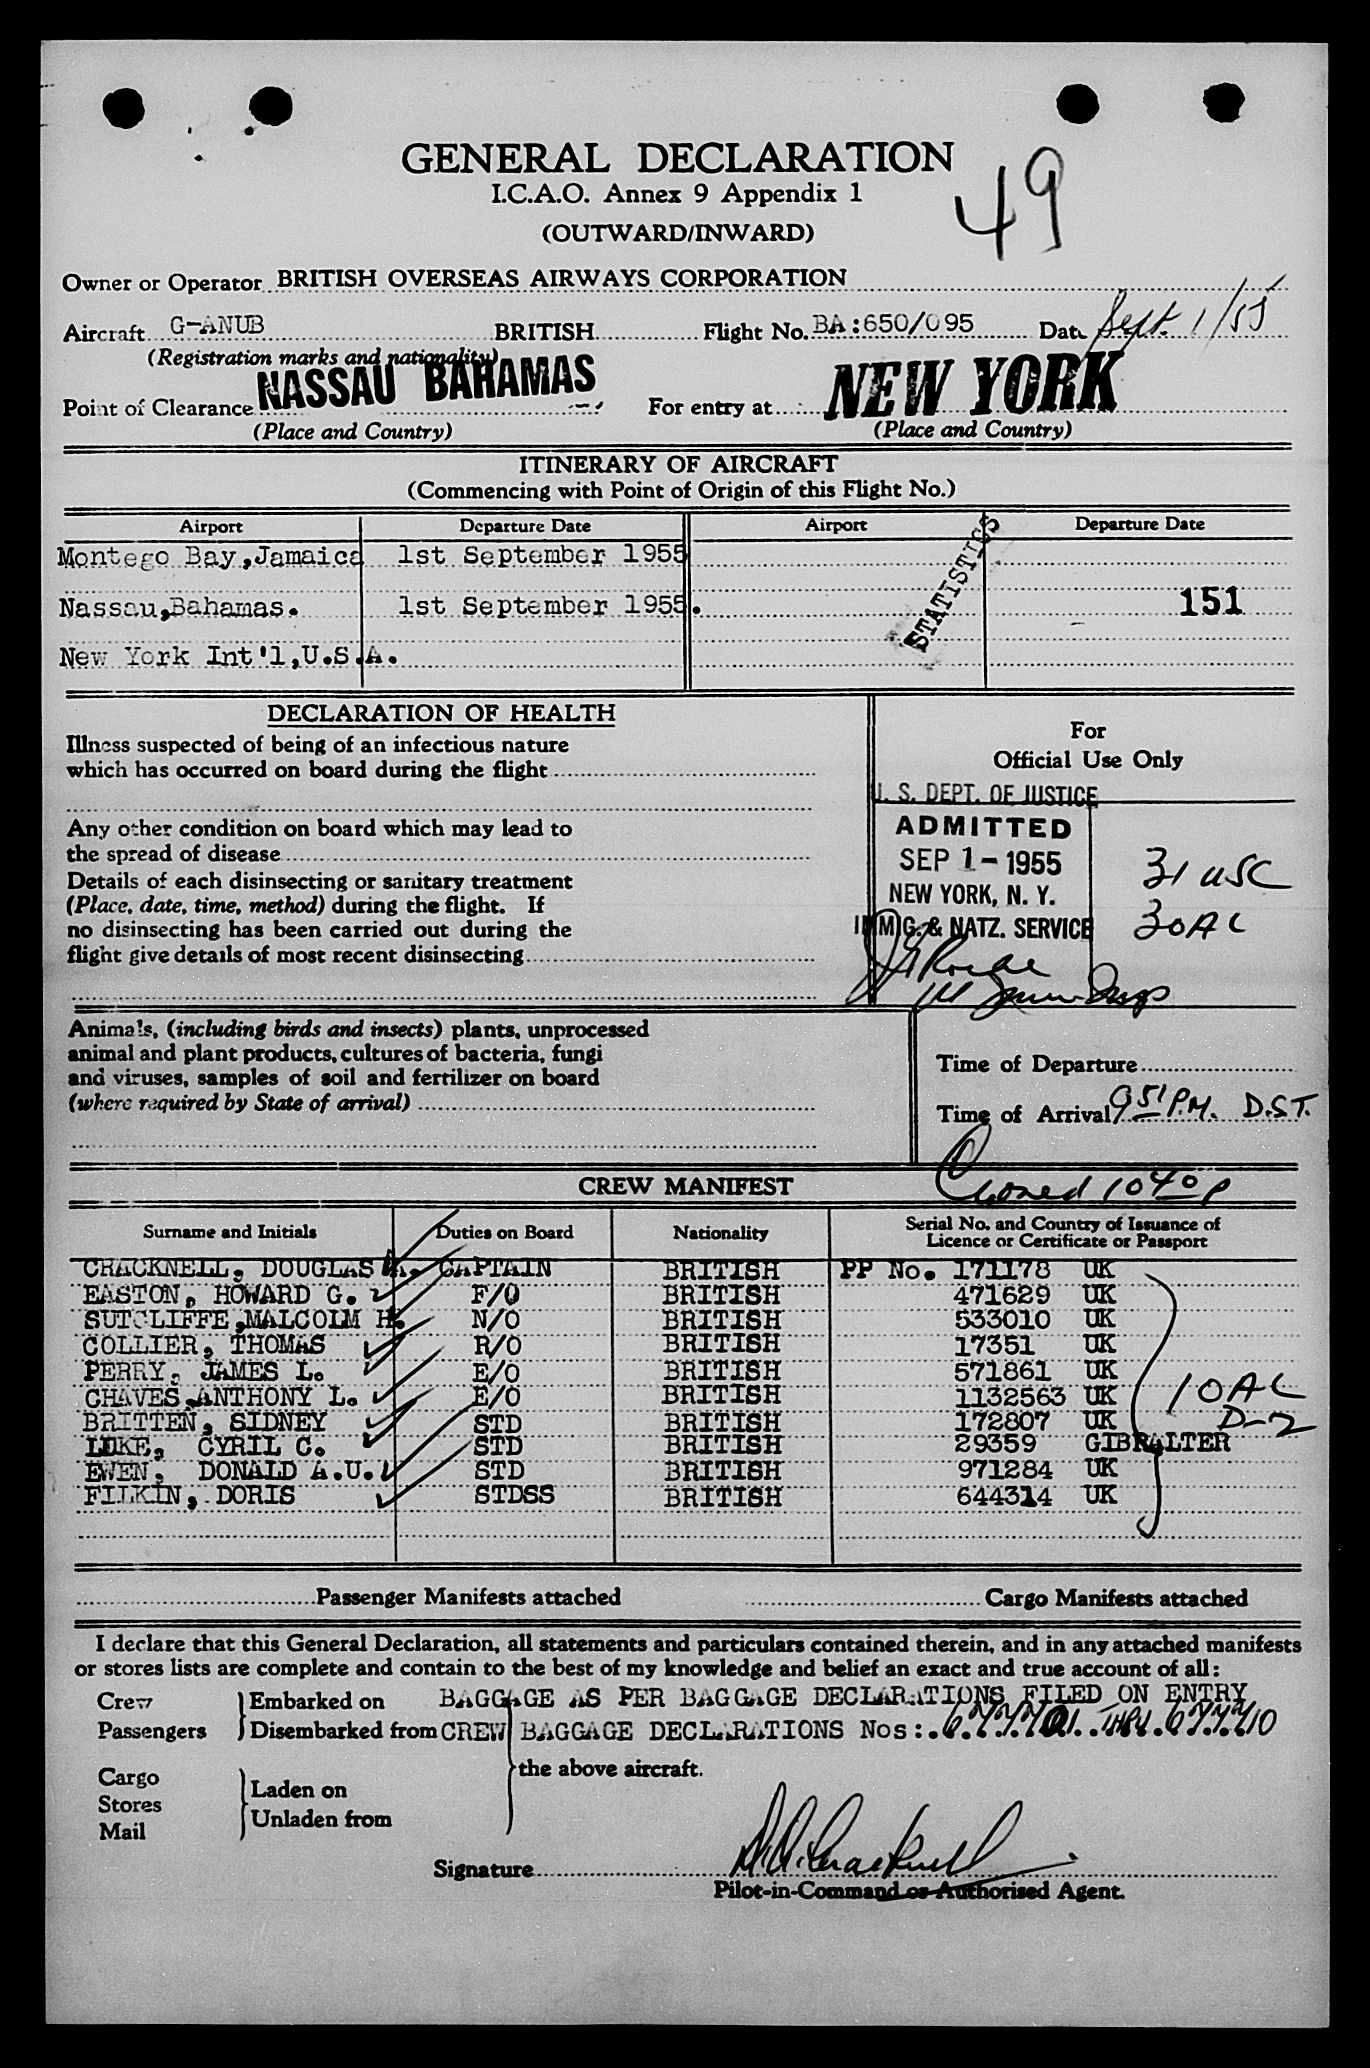 GENERAL DECLARATION
I.C.A.O. Annex 9 Appendix 1
(OUTWARD/INWARD)
49
Owner or Operator BRITISH OVERSEAS AIRWAYS CORPORATION
Aircraft G-ANUB BRITISH Flight No. BA:650/095 Date Sept. 1/55
(Registration marks and nationality)
Point of Clearance NASSAU BAHAMAS For entry at NEW YORK
(Place and Country) (Place and Country)
ITINERARY OF AIRCRAFT
(Commencing with Point of Origin of this Flight No.)
Airport Departure Date Airport Departure Date
Montego Bay,Jamaica 1st September 1955
STATISTICS
Nassau,Bahamas. 1st September 1955. 151
New York Int'l,U.S.A.
DECLARATION OF HEALTH
Illness suspected of being of an infectious nature
which has occurred on board during the flight
Any other condition on board which may lead to
the spread of disease
Details of each disinsecting or sanitary treatment
(Place, date, time, method) during the flight. If
no disinsecting has been carried out during the
flight give details of most recent disinsecting
For
Official Use Only
U. S. DEPT. OF JUSTICE
ADMITTED
SEP 1 - 1955
NEW YORK, N. Y.
IMMIG. & NATZ. SERVICE
31 USC
30 AL
Animals, (including birds and insects) plants, unprocessed
animal and plant products, cultures of bacteria, fungi
and viruses, samples of soil and fertilizer on board
(where required by State of arrival)
Time of Departure
Time of Arrival 951 P.M. D.S.T.
Closed 1040 P
CREW MANIFEST
Surname and Initials Duties on Board Nationality Serial No. and Country of Issuance of
Licence or Certificate or Passport
CRACKNELL, DOUGLAS A. CAPTAIN BRITISH PP No. 171178 UK
EASTON, HOWARD G. F/O BRITISH 471629 UK
SUTCLIFFE,MALCOLM H. N/O BRITISH 533010 UK
COLLIER, THOMAS R/O BRITISH 17351 UK
PERRY, JAMES L. E/O BRITISH 571861 UK
CHAVES,ANTHONY L. E/O BRITISH 1132563 UK
BRITTEN, SIDNEY STD BRITISH 172807 UK
LUKE, CYRIL C. STD BRITISH 29359 GIBRALTER
EWEN, DONALD A.U. STD BRITISH 971284 UK
FILKIN, DORIS STDSS BRITISH 644314 UK
10 AL
D-2
Passenger Manifests attached Cargo Manifests attached
I declare that this General Declaration, all statements and particulars contained therein, and in any attached manifests
or stores lists are complete and contain to the best of my knowledge and belief an exact and true account of all:
Crew Embarked on BAGGAGE AS PER BAGGAGE DECLARATIONS FILED ON ENTRY
Passengers Disembarked from CREW BAGGAGE DECLARATIONS Nos:. THRU.
the above aircraft.
Cargo
Stores
Mail
Laden on
Unladen from
Signature D.A. Cracknell
Pilot-in-Command or Authorised Agent.